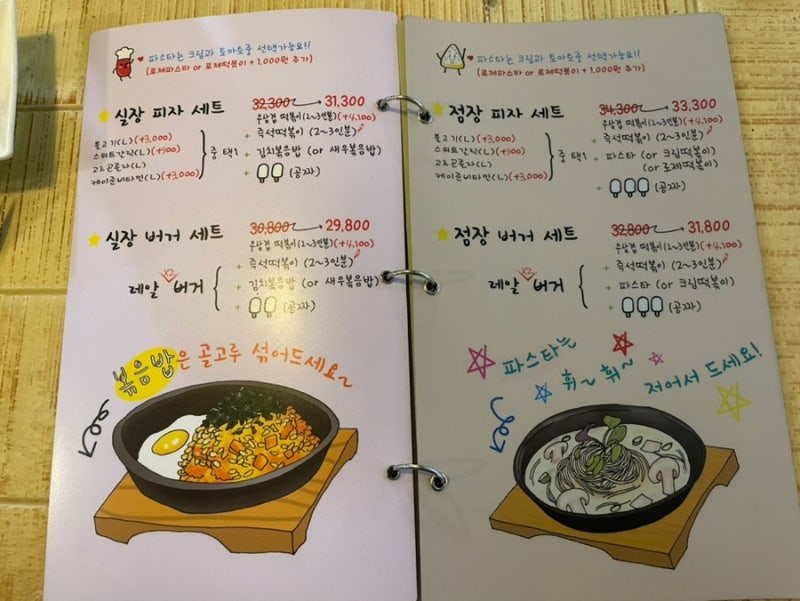 ♥ 파스타는 크림과 토마토중 선택가능요!!
(로제파스타 or 로제떡볶이 + 1,000원 추가)
실장 피자 세트 32,300 → 31,300
우삼겹 떡볶이(2~3인분)(+4,100)
불고기(L)(+3,000)
스위트갈릭(L)(+500)
고르곤졸라(L)
케이준쉬림프(L)(+3,000)
중 택1
+ 즉석떡볶이 (2~3인분)
+ 김치볶음밥 (or 새우볶음밥)
+ (공짜)
실장 버거 세트 30,800 → 29,800
우삼겹 떡볶이(2~3인분)(+4,100)
레알 버거
+ 즉석떡볶이 (2~3인분)
+ 김치볶음밥 (or 새우볶음밥)
+ (공짜)
볶음밥은 골고루 섞어드세요~
♥ 파스타는 크림과 토마토중 선택가능요!!
(로제파스타 or 로제떡볶이 + 1,000원 추가)
점장 피자 세트 34,300 → 33,300
우삼겹 떡볶이(2~3인분)(+4,100)
불고기(L)(+3,000)
스위트갈릭(L)(+500)
고르곤졸라(L)
케이준쉬림프(L)(+3,000)
중 택1
+ 즉석떡볶이 (2~3인분)
+ 파스타 (or 크림떡볶이)
(or 로제떡볶이)
+ (공짜)
점장 버거 세트 32,800 → 31,800
우삼겹 떡볶이(2~3인분)(+4,100)
레알 버거
+ 즉석떡볶이 (2~3인분)
+ 파스타 (or 크림떡볶이)
+ (공짜)
파스타는
휘~ 휘~
저어서 드세요!